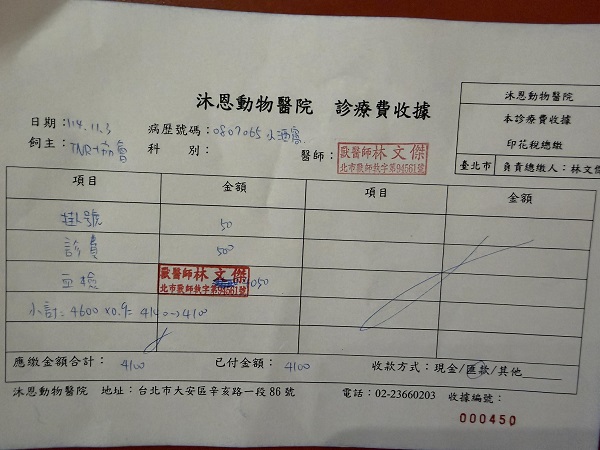 沐恩動物醫院 診療費收據
沐恩動物醫院
本診療費收據
印花稅總繳
臺北市 負責總繳人：林文傑
日期：114.11.3 病歷號碼：0807065 小酒窩
飼主：TNR協會 科別： 醫師：獸醫師林文傑
北市獸師執字第94561號
項目 金額 項目 金額
掛號 50
診費 500
血檢 獸醫師林文傑 4050
北市獸師執字第94561號
小計：4600×0.9=4140→4100
應繳金額合計：4100 已付金額：4100 收款方式：現金/匯款/其他
沐恩動物醫院 地址：台北市大安區辛亥路一段86號 電話：02-23660203 收據編號：
000450